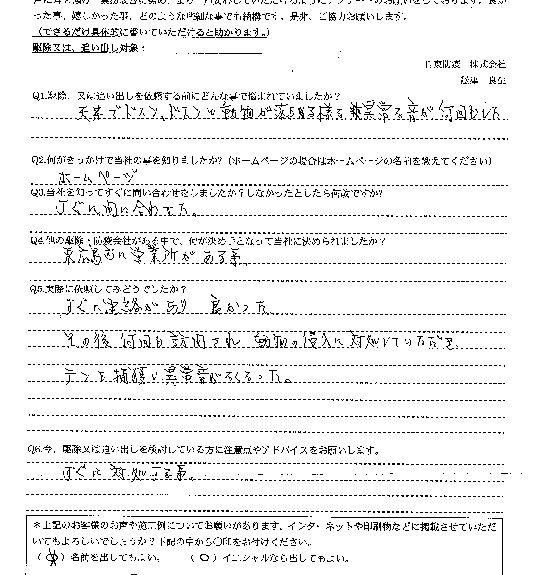 った事、嬉しかった事、どのような些細な事でも結構です。是非、ご協力お願いします。
（できるだけ具体的に書いていただけると助かります。）
駆除又は、追い出し対象：
株式会社
Q1.駆除、又は追い出しを依頼する前にどんな事で悩まれていましたか？
天井でドスン、ドスンと動物が落ちる様な異常な音が何回もした
Q2.何がきっかけで当社の事を知りましたか？（ホームページの場合はホームページの名前を教えてください）
ホームページ
Q3.当社を知ってすぐに問い合わせをしましたか？しなかったとしたら何故ですか？
すぐに問い合わせた。
Q4.他の駆除・防除会社がある中で、何が決め手となって当社に決められましたか？
東広島市に営業所がある事。
Q5.実際に依頼してみてどうでしたか？
すぐに連絡があり 良かった
その後 何回も訪問され 動物の侵入に対処していただき
テンを捕獲し異常音がなくなった。
Q6.今、駆除又は追い出しを検討している方に注意点やアドバイスをお願いします。
すぐに対処する事。
＊上記のお客様のお声や施工例についてお願いがあります。インターネットや印刷物などに掲載させていただ
いてもよろしいでしょうか？下記の中から〇印をお付けください。
（ ）名前を出してもよい。 （〇）イニシャルなら出してもよい。